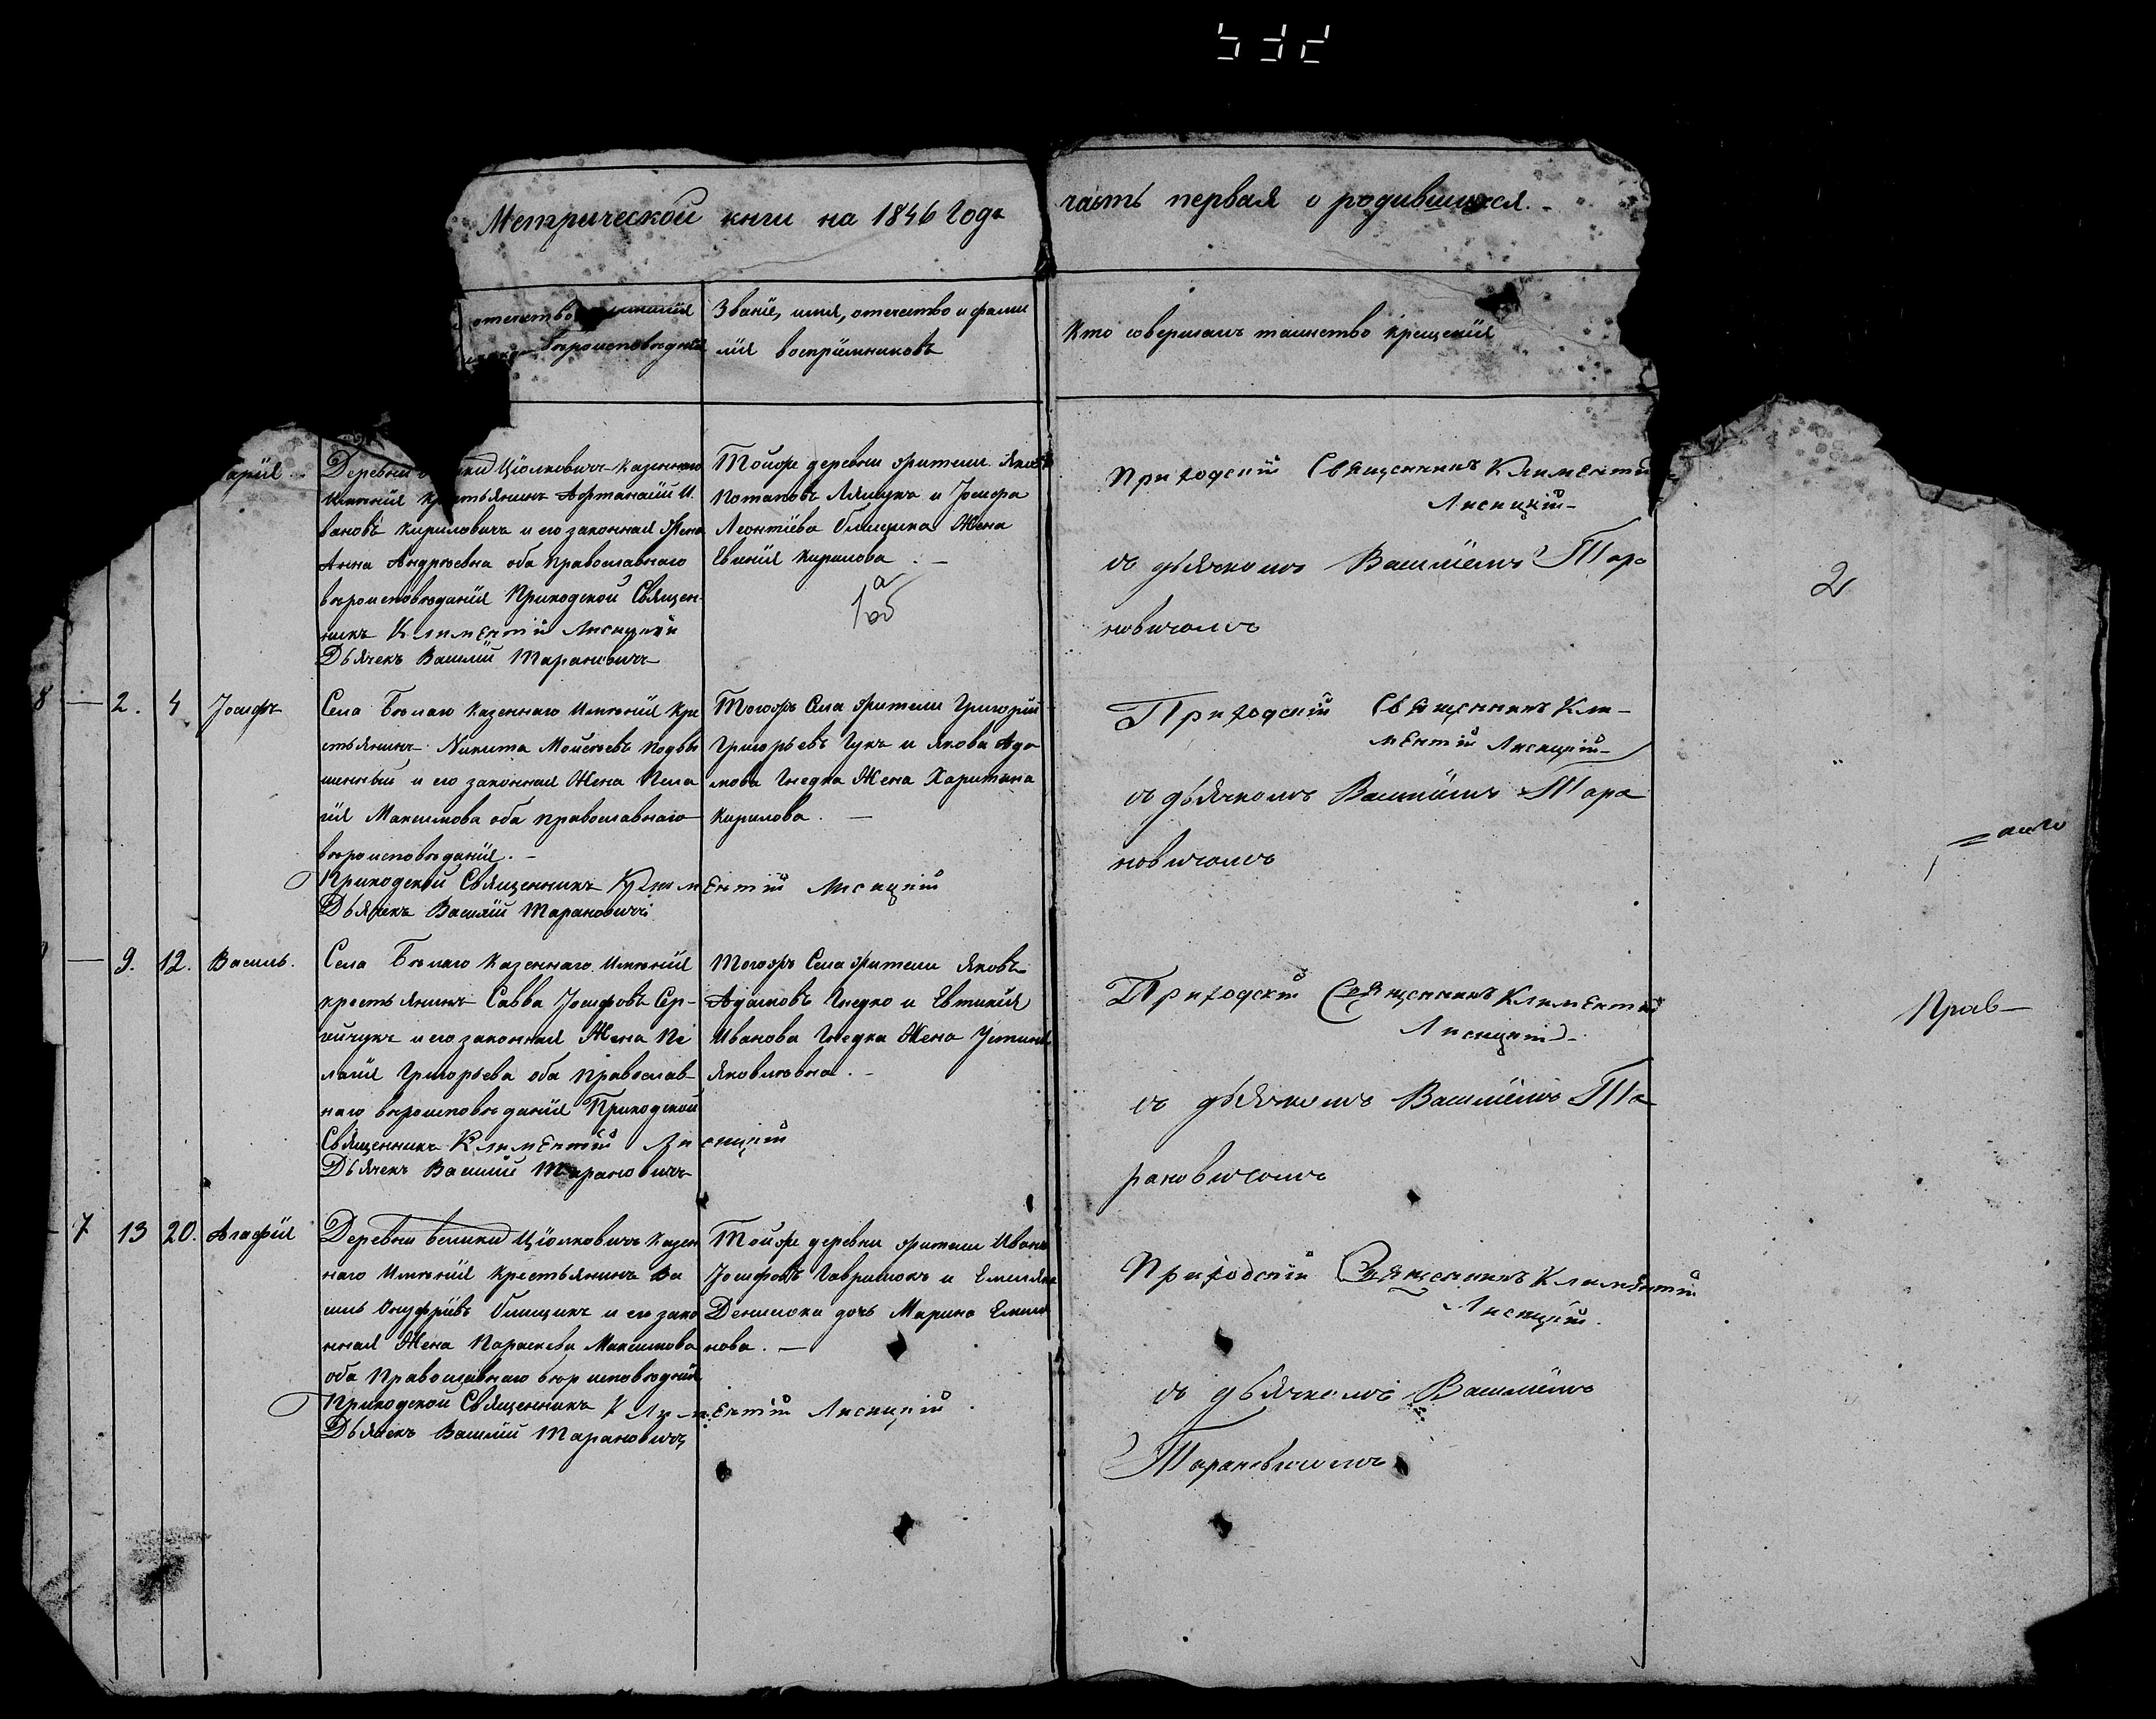 532
Метрической книги на 1846 Года
часть первая о родившихся.
отечество
вероисповеданія
Званіе, имя, отечество и фами
лія воспріимниковъ
Кто совершалъ таинство крещенія
арія
Деревни Ціолковичъ казеннаго
Именія Крестьянинъ Афтанасій И.
вановъ Кириловичъ и его законная Жена
Анна Андреевна оба Православнаго
вероисповеданія Приходской Священ-
никъ Климентій Лисицкій
Дьячекъ Василій Тарановичъ
Тойже деревни жители Яковъ
Потаповъ и Іосифа
Леонтіева Жена
Евгенія Кирилова. —
Приходскій Священникъ Климентій
Лисицкій-
съ дьячкомъ Василіемъ Тара
новичомъ
2
8 — 2. 4 Іосифъ
Села Белаго Казеннаго Именія Кре
стьянинъ Никита Мойсеевъ
и его законная Жена Пела
гія Максимова оба православнаго
вероисповеданія. -
Приходской Священникъ Климентій Лисицкій
Дьячекъ Василій Тарановичъ
Тогожъ Села жители Григорій
Григорьевъ Гукъ и Якова Ада
мова Гнедка Жена Харитина
Кирилова. —
Приходскій Священникъ Кли-
ментій Лисицкій-
съ дьячкомъ Василіемъ Тара
новичомъ
— 9. 12. Василь.
Села Белаго Казеннаго Именія
крестьянинъ Савва Іосифовъ Сер-
гейчукъ и его законная Жена Пе
лагія Григорьева оба Православ-
наго вероисповеданія Приходской
Священникъ Климентій Лисицкій
Дьячекъ Василій Тарановичъ
Тогожъ Села жители Яковъ
Адамовъ Гнедко и Евтихія
Иванова Гнедка Жена Устинія
Яковлевна. -
Приходскій Священникъ Климентій
Лисицкій-
съ дьячкомъ Василіемъ Та
рановичомъ
Прав-
7 13 20. Агафія
Деревни Велики Ціолковичъ Казен
наго Именія Крестьянинъ Ва
силь Онуфріевъ и его зако
нная Жена Параскева Максимова
оба Православнаго вероисповеданія
Приходской Священникъ Климентій Лисицкій.
Дьячекъ Василій Тарановичъ
Тойже деревни жители Иванъ
Іосифовъ Гаврилюкъ и Емиляна
Денисюка дочь Марина Емиля
нова. —
Приходскій Священникъ Климентій
Лисицкій.
съ дьячкомъ Василіемъ
Тарановичомъ